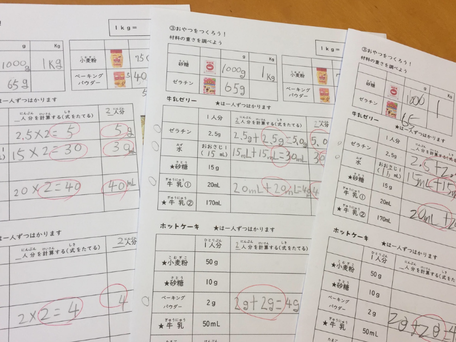 1kg=
g
kg
1000g
1kg
小麦粉
65g
ベーキング
パウダー
★は一人ずつはかります
2人分
2.5×2=5
5g
15×2=30
30
20×2=40
40mL
★は一人ずつはかります
2人分
2×2=4
4
③おやつをつくろう!
材料の重さを調べよう
1kg=
g
kg
砂糖
1000g
1kg
小麦粉
ゼラチン
65g
ベーキング
パウダー
牛乳ゼリー
★は一人ずつはかります
1人分
2人分を計算する(式をたてる)
2人分
ゼラチン
2.5g
2.5g+2.5g=5.0g
5.0
水
おおさじ1
(15mL)
15mL+15mL=30mL
30
★砂糖
15g
★牛乳①
20mL
20mL+20mL=40
★牛乳②
170mL
ホットケーキ
★は一人ずつはかります
1人分
2人分を計算する(式をたてる)
★小麦粉
50g
★砂糖
10g
ベーキング
パウダー
2g
2g+2g=4g
★牛乳
50mL
③おやつをつくろう!
材料の重さを調べよう
g
kg
砂糖
1000
1
ゼラチン
65
牛乳ゼリー
★は一人ずつはかります
1人分
人分を計算する(式をたてる)
ゼラチン
2.5g
水
おおさじ1
(15mL)
15mL+15
★砂糖
15g
★牛乳①
20mL
20mL+20
★牛乳②
170mL
ホットケーキ
★は一人ずつはかります
1人分
人分を計算する(式をたてる)
★小麦粉
50g
★砂糖
10g
ベーキング
パウダー
2g
2g+2g=4
★牛乳
50mL